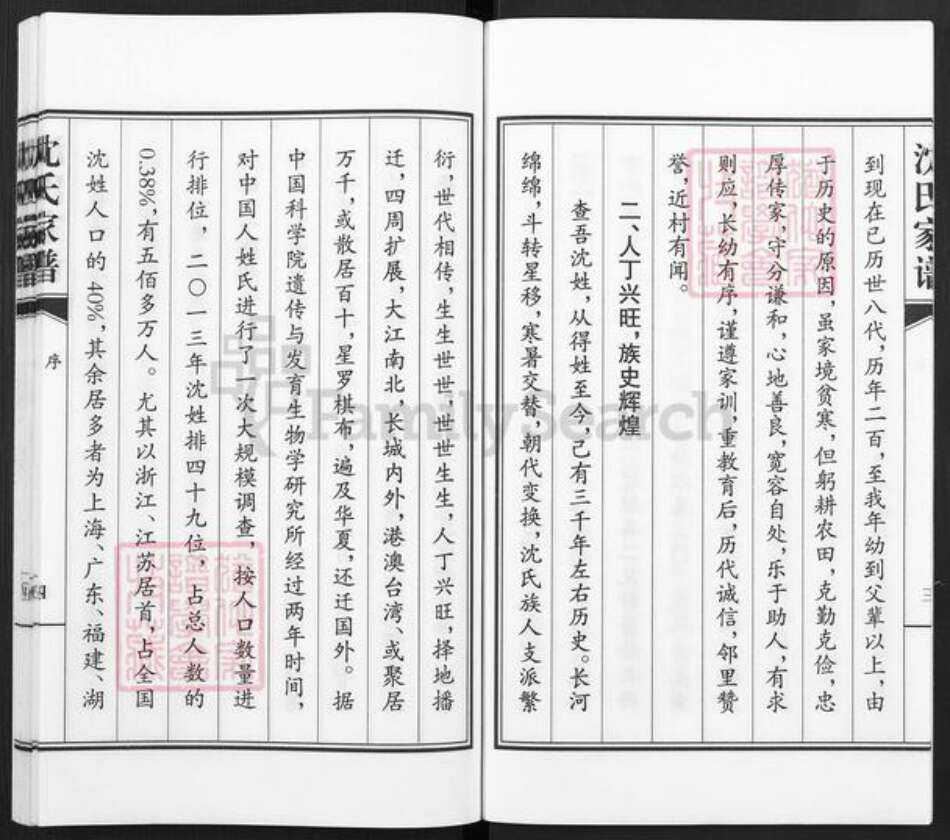 沈氏家谱
三
到现在已历世八代，历年二百，至我年幼到父辈以上，由
于历史的原因，虽家境贫寒，但躬耕农田，克勤克俭，忠
厚传家，守分谦和，心地善良，宽容自处，乐于助人，有求
则应，长幼有序，谨遵家训，重教育后，历代诚信，邻里赞
誉，近村有闻。
二、人丁兴旺，族史辉煌
查吾沈姓，从得姓至今，已有三千年左右历史。长河
绵绵，斗转星移，寒暑交替，朝代变换，沈氏族人支派繁
衍，世代相传，生生世世，世世生生，人丁兴旺，择地播
迁，四周扩展，大江南北，长城内外，港澳台湾、或聚居
万千，或散居百十，星罗棋布，遍及华夏，还迁国外。据
中国科学院遗传与发育生物学研究所经过两年时间，
对中国人姓氏进行了一次大规模调查，按人口数量进
行排位，二〇一三年沈姓排四十九位，占总人数的
0.38%，有五佰多万人。尤其以浙江、江苏居首，占全国
沈姓人口的40%，其余居多者为上海、广东、福建、湖
沈氏家谱
序
四
FamilySearch